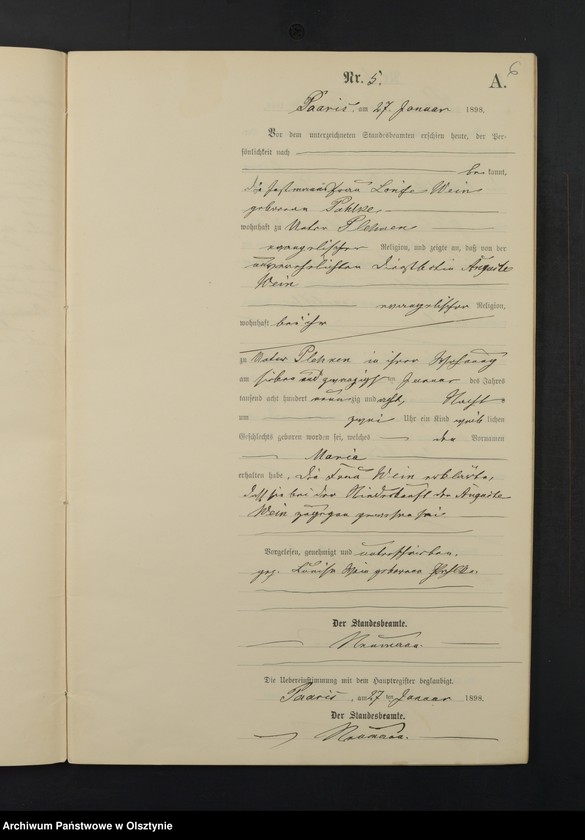 6
Nr. 5.
A.
Paaris, am 27. Januar 1898.
Vor dem unterzeichneten Standesbeamten erschien heute, der Per-
sönlichkeit nach
be kannt,
die Frau Louise Wein
geborene Pahlke
wohnhaft zu Unter Plehnen
evangelischer Religion, und zeigte an, daß von der
unverehelichten Auguste
Wein
evangelischer Religion,
wohnhaft bei ihr
zu Unter Plehnen in ihrer Wohnung
am sieben und zwanzigsten Januar des Jahres
tausend acht hundert neun zig und acht, Nachts
um zwei Uhr ein Kind weib lichen
Geschlechts geboren worden sei, welches den Vornamen
Maria
erhalten habe. Die Frau Wein erklärte,
daß sie bei der Niederkunft der Auguste
Wein zugegen gewesen sei.
Vorgelesen, genehmigt und unterschrieben.
gez. Louise Wein geborene Pahlke.
Der Standesbeamte.
Naumann.
Die Uebereinstimmung mit dem Hauptregister beglaubigt.
Paaris, am 27 ten Januar 1898.
Der Standesbeamte.
Naumann.
Archiwum Państwowe w Olsztynie